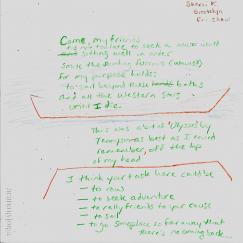 Come, my friends
'Tis not too late, to seek a newer world
and sitting well in order
Smite the sounding furrows (waves)
for my purpose holds:
to sail beyond these baths
and all the western stars
until I die.
This was a bit of "Ulysses" by
Tennyson as best as I could
remember, off the top
of my head
I think your task here could be
— to row
— to seek adventure
— to rally friends to your cause
— to sail
— to go someplace so far away that
there's no coming back...